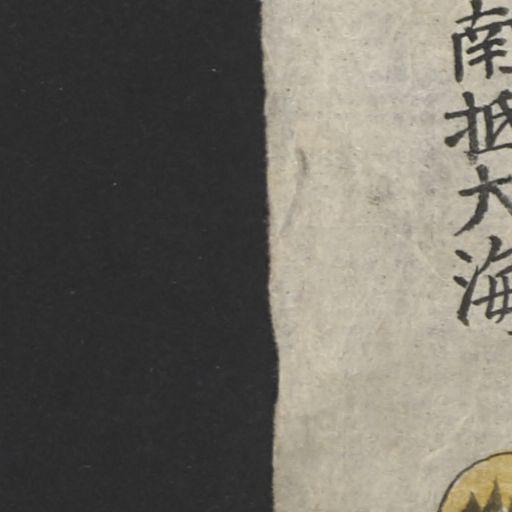 南抵大海